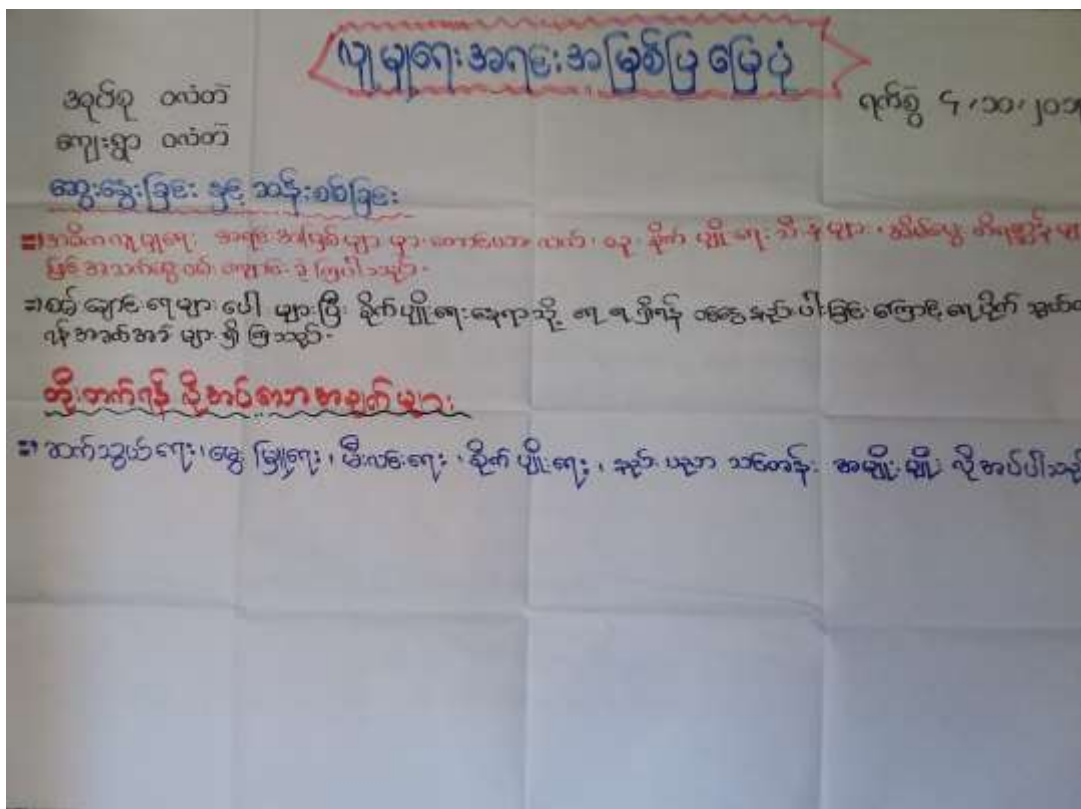 လူမှုရေးအရင်းအမြစ်ပြမြေပုံ
အုပ်စု ဝလံတဲ
ကျေးရွာ ဝလံတဲ
ရက်စွဲ ၄၊၁၀၊၂၀၁
ဆွေးနွေးခြင်း နှင့် ဆန်းစစ်ခြင်း
⇒ အဓိကလူမှုရေး အရင်းအမြစ်များ မှာ တောင်ပေါ လယ်၊ ၊ စိုက် ပျိုးရေး သီးနှံများ၊ အိမ်မွေး တိရစ္ဆာန် များ
ဖြင့် အသက်မွေး ဝမ်း ကျောင်း ခဲ့ကြပါသည်။
⇒ စမ့် ချောင်း ရေများ ပေါ များပြီး စိုက်ပျိုးရေးနေရာသို့ ရေ ရ ရှိရန် ငွေ နည်းပါးခြင်း ကြောင့် ရေပိုက် သွယ်
ရန် အခက်အခဲ များ ရှိ ကြသည်။
တိုးတက်ရန် လိုအပ်သောအချက်များ
⇒ ဆက်သွယ်ရေး၊ မွေး မြူရေး၊ မီးလင်းရေး၊ စိုက် ပျိုးရေး၊ နည်း ပညာ သင်တန်း အမျိုးမျိုး လိုအပ်ပါသည်